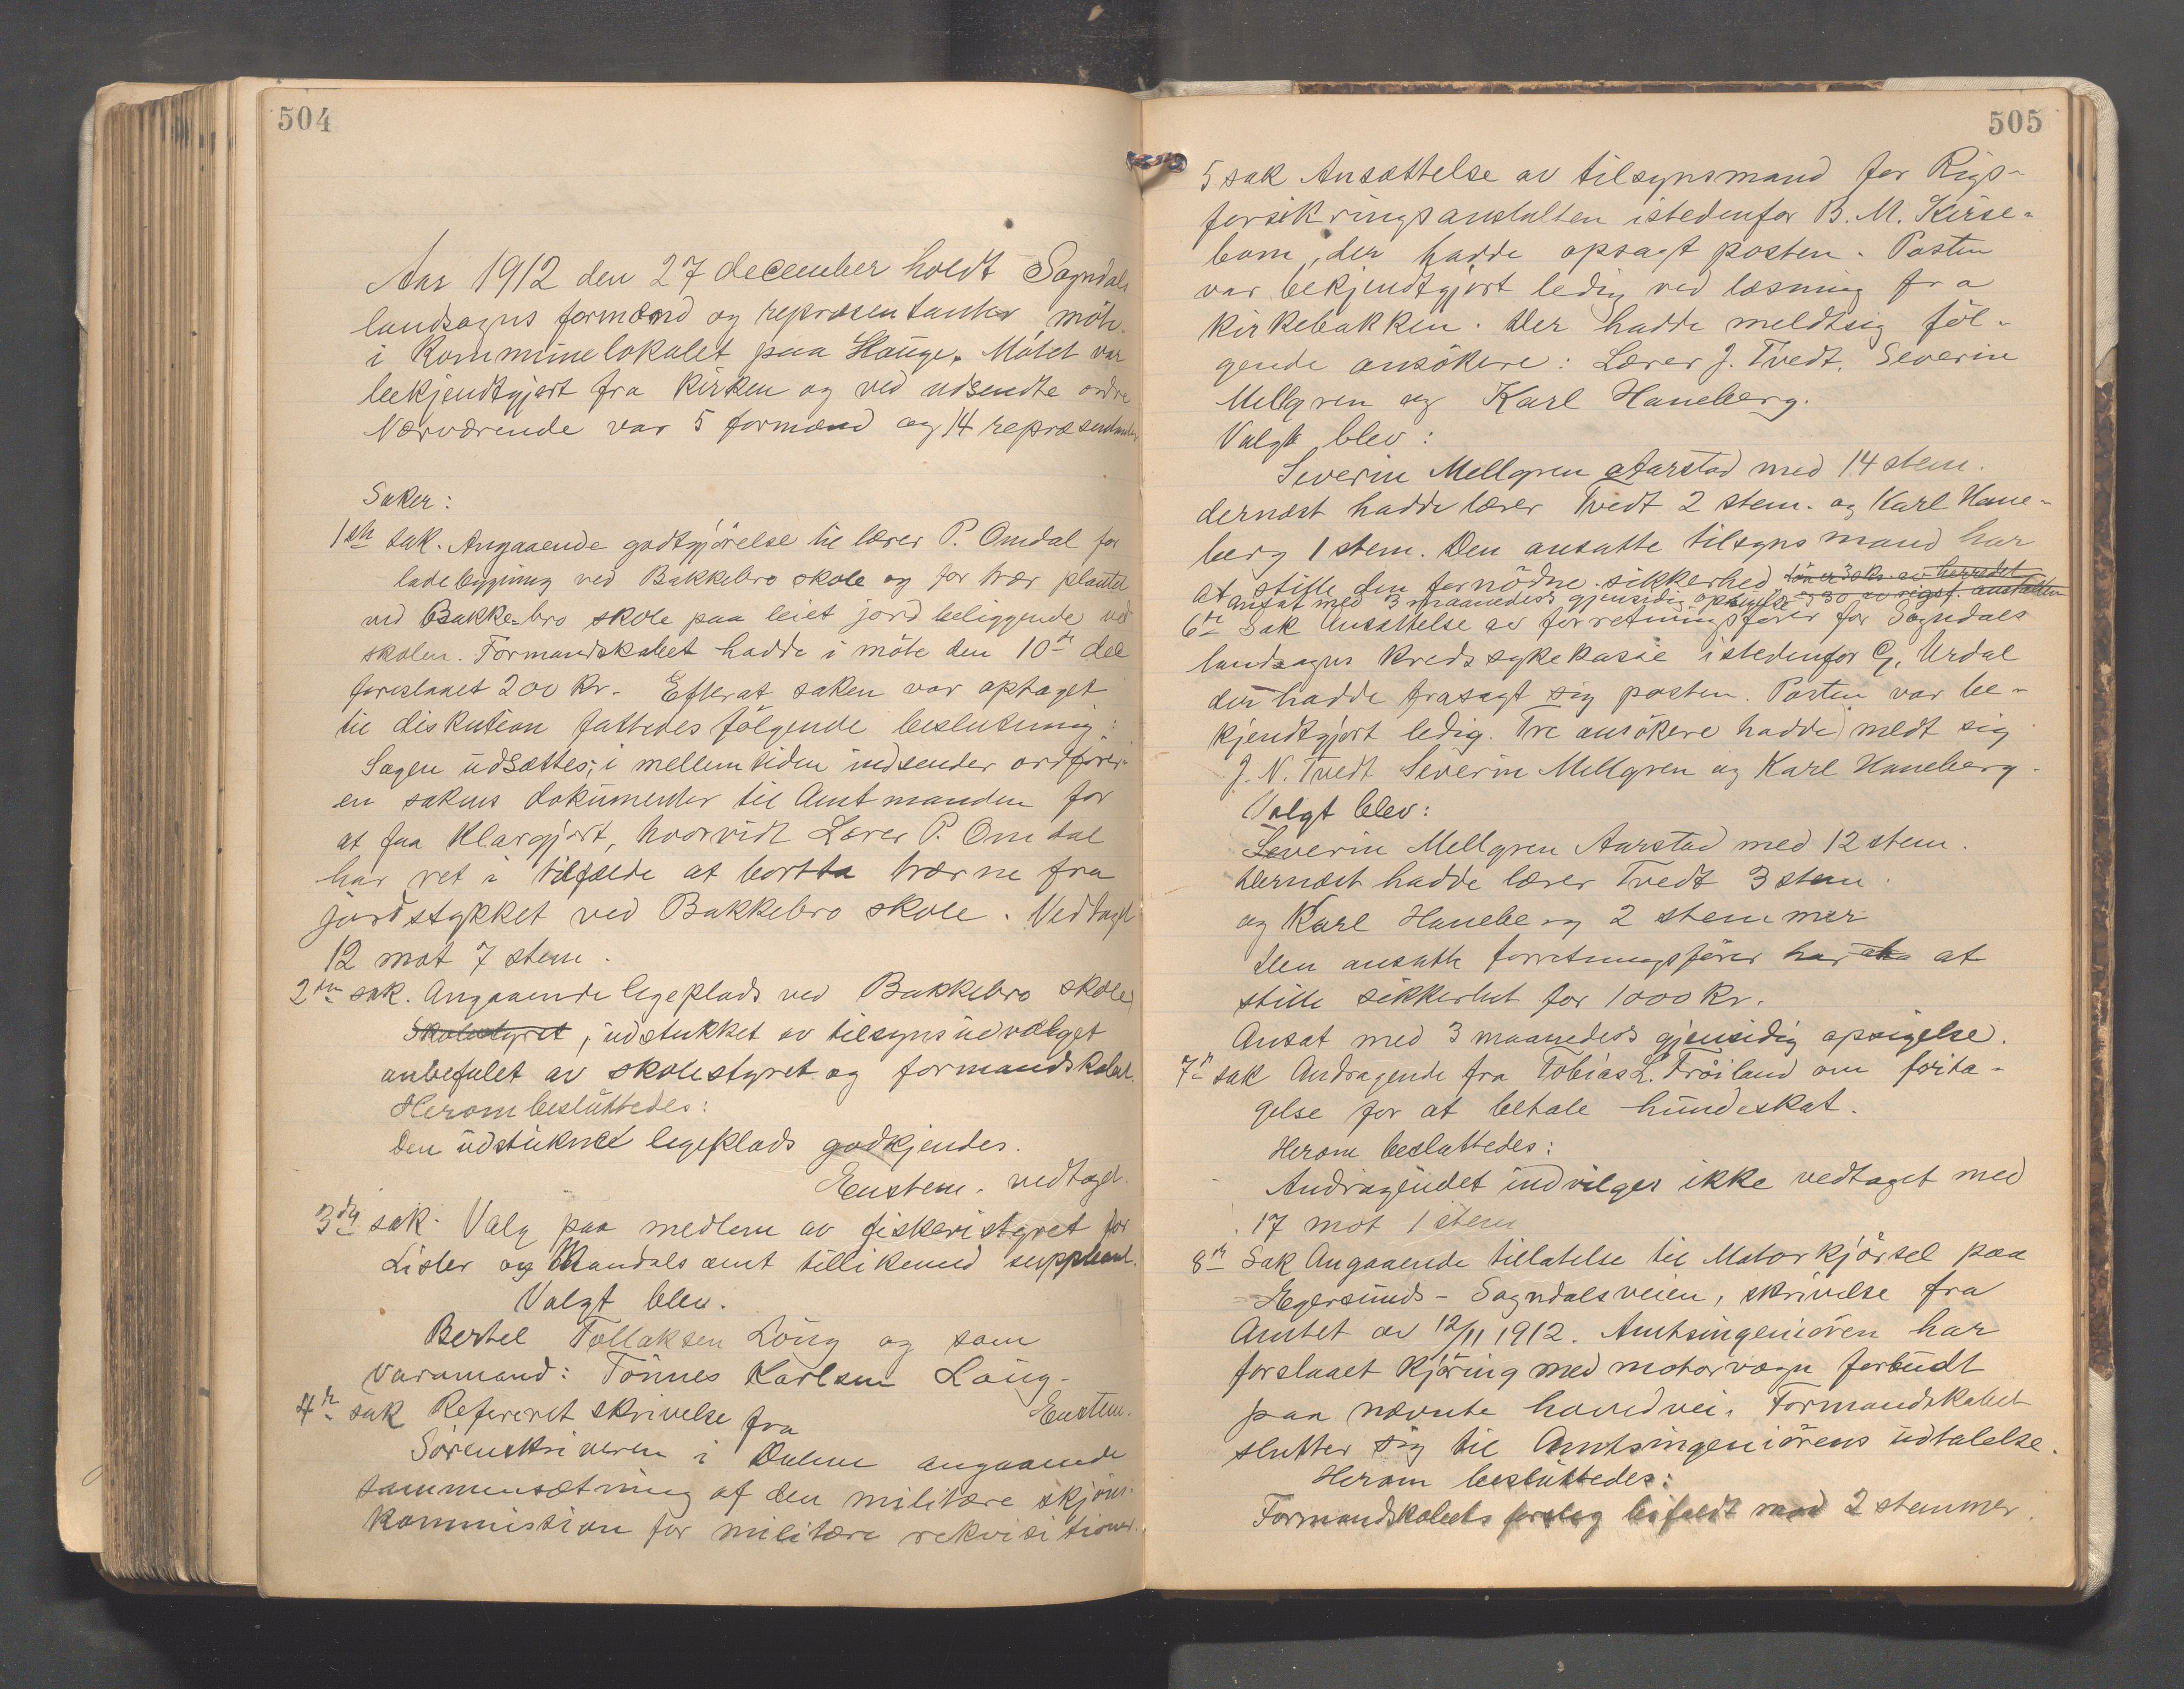 504
Aar 1912 den 27 december holdt Sogndals
landsogns formænd og repræsentanter möte
i kommunelokalet paa Hauge. Mötet var
bekjendtgjort fra kirken og ved udsendte ordre
Nærværende var 5 formænd og 14 repræsentanter
Saker:
1ste sak. Angaaende godtgjörelse til lærer P. Omdal for
ladebygning ved Bakkebro skole og for trær plantet
ved Bakke-bro skole paa leiet jord beliggende ved
skolen. Formandskabet hadde i möte den 10de dec
foreslaaet 200 kr. Efterat saken var optaget
til diskution fattedes fölgende beslutning:
Sagen udsættes; i mellemtiden indsender ordförer-
en sakens dokumenter til Amtmanden for
at faa klargjort, hvorvidt Lærer P. Omdal
har ret i tilfælde at bortta trærne fra
jordstykket ved Bakkebro skole. Vedtaget
12 mot 7 stem.
2den sak. Angaaende legeplads ved Bakkebro skole
Skolestyret, udstukket av tilsynsudvalget
anbefalet av skolestyret og formandskabet.
Herom besluttedes:
Den udstukne legeplads godkjendes.
Enstem. vedtaget.
3dje sak. Valg paa medlem av fiskeristyret for
Lister og Mandals amt tillikemed suppleant.
Valgt blev.
Bertel Tollaksen Löng og som
varamand: Tönnes Karlsen Löng-
Enstem.
4de sak Refereret skrivelse fra
Sörenskriveren i Dalene angaaende
sammensætning af den militære skjöns-
kommission for militære rekvisitioner.
505
5 sak Ansættelse av tilsynsmand for Rigs-
forsikringsanstalten istedenfor B. M. Kirse-
bom, der hadde opsagt posten. Posten
var bekjendtgjort ledig ved læsning fra
kirkebakken. Der hadde meldtsig föl-
gende ansökere: Lærer J. Tvedt, Severin
Mellgren og Karl Haneberg.
Valgt blev:
Severin Mellgren Aarstad med 14 stem.
dernæst hadde lærer Tvedt 2 stem. og Karl Hane-
berg 1 stem. Den ansatte tilsynsmand har
at stille den fornödne sikkerhed Lön er 3 kr. av herredet
ansat med 3 maaneders gjensidig opsigelse og 30 av rigsf. anstalten
6te Sak Ansættelse av forretningsförer for Sogndals
landsogns kredssykekasse istedenfor G. Urdal
der hadde frasagt sig posten. Posten var be-
kjendtgjort ledig. Tre ansökere hadde meldt sig
J. N. Tvedt Severin Mellgren og Karl Haneberg.
Valgt blev:
Severin Mellgren Aarstad med 12 stem.
Dernæst hadde lærer Tvedt 3 stem.
og Karl Haneberg 2 stemmer
Den ansatte forretningsförer har at
stille sikkerhet for 1000 kr.
Ansat med 3 maaneders gjensidig opsigelse.
7de sak Andragende fra Tobias L. Fröiland om frita-
gelse for at betale hundeskat.
Herom besluttedes:
Andragendet indvilges ikke vedtaget med
17 mot 1 stem
8de Sak Angaaende tillatelse til Motorkjörsel paa
Egersunds-Sogndalsveien, skrivelse fra
Amtet av 12/11 1912. Amtsingeniören har
foreslaaet kjöring med motorvogn forbudt
paa nævnte hovedvei. Formandskabet
slutter sig til Amtsingeniörens udtalelse.
Herom besluttedes:
Formandskabets forslag bifaldt mod 2 stemmer.